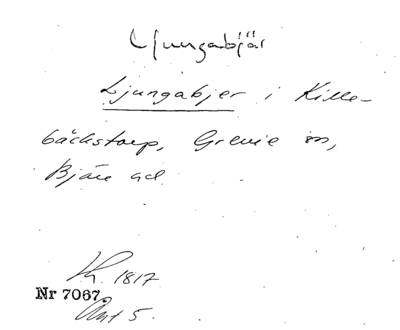 Ljungabjär
Ljungabjer i Kille-
bäckstorp, Grevie sn,
Bjäre hd
1817
Nr 7067
Akt 5.